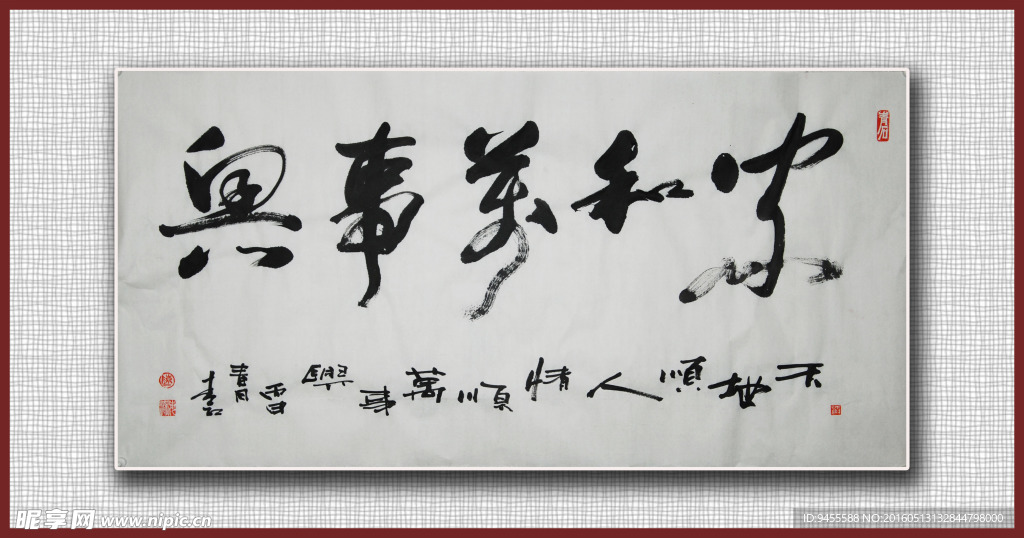 家和萬事興
天地順人情順萬事興
青石
昵享网 www.nipic.cn
ID:9455588 NO:20160513132844798000